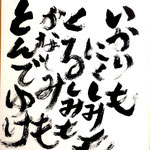 いかりも
にくしみも
くるしみも
かなしみも
とんでゆけ